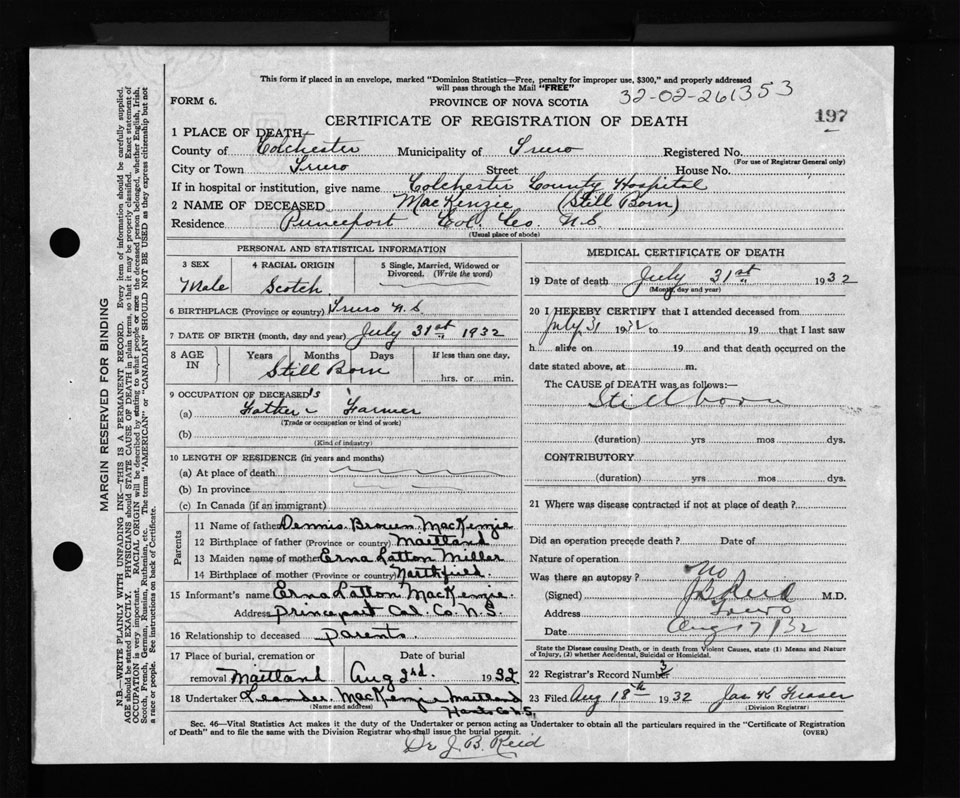 This form if placed in an envelope, marked "Dominion Statistics—Free, penalty for improper use, $300," and properly addressed
will pass through the Mail "FREE"
32-02-261353
FORM 6.
PROVINCE OF NOVA SCOTIA
197
CERTIFICATE OF REGISTRATION OF DEATH
1 PLACE OF DEATH
County of Colchester Municipality of Truro Registered No.
(For use of Registrar General only)
City or Town Truro Street House No.
If in hospital or institution, give name Colchester County Hospital
2 NAME OF DECEASED MacKenzie (Still Born)
Residence Princeport Col. Co. N.S.
(Usual place of abode)
PERSONAL AND STATISTICAL INFORMATION
3 SEX
Male
4 RACIAL ORIGIN
Scotch
5 Single, Married, Widowed or
Divorced. (Write the word)
6 BIRTHPLACE (Province or country) Truro N.S.
7 DATE OF BIRTH (month, day and year) July 31st 1932
8 AGE
IN
Years Months Days If less than one day,
Still Born
hrs. or min.
9 OCCUPATION OF DECEASED'S
(a) Father - Farmer
(Trade or occupation or kind of work)
(b)
(Kind of industry)
10 LENGTH OF RESIDENCE (in years and months)
(a) At place of death
(b) In province
(c) In Canada (if an immigrant)
Parents
11 Name of father Dennis Brown MacKenzie
12 Birthplace of father (Province or country) Maitland
13 Maiden name of mother Erna Latton Miller
14 Birthplace of mother (Province or country) Northfield.
15 Informant's name Erna Latton MacKenzie.
Address Princeport Col. Co. N.S.
16 Relationship to deceased parents.
17 Place of burial, cremation or
removal Maitland
Date of burial
Aug 2nd. 1932
18 Undertaker Leander MacKenzie Maitland
(Name and address)
Hants Co N.S.
MEDICAL CERTIFICATE OF DEATH
19 Date of death July 31st 1932
(Month, day and year)
20 I HEREBY CERTIFY that I attended deceased from
July 31 1932 to 19 that I last saw
h alive on 19 and that death occurred on the
date stated above, at m.
The CAUSE of DEATH was as follows:—
Stillborn
(duration) yrs mos dys.
CONTRIBUTORY
(duration) yrs mos dys.
21 Where was disease contracted if not at place of death?
Did an operation precede death? Date of
Nature of operation
Was there an autopsy? No
(Signed) JB Reid M.D.
Address Truro
Date Aug 17/32
State the Disease causing Death, or in death from Violent Causes, state (1) Means and Nature
of Injury, (2) whether Accidental, Suicidal or Homicidal.
22 Registrar's Record Number 3
23 Filed Aug 18th 1932 Jas K Fraser
(Division Registrar)
Sec. 46—Vital Statistics Act makes it the duty of the Undertaker or person acting as Undertaker to obtain all the particulars required in the "Certificate of Registration
of Death" and to file the same with the Division Registrar who shall issue the burial permit.
(OVER)
Dr J. B. Reid
MARGIN RESERVED FOR BINDING
N.B.—WRITE PLAINLY WITH UNFADING INK—THIS IS A PERMANENT RECORD. Every item of information should be carefully supplied.
AGE should be stated EXACTLY. PHYSICIANS should STATE CAUSE OF DEATH in plain terms, so that it may be properly classified. Exact statement of
OCCUPATION is very important. RACIAL ORIGIN will be described by stating to what people or race the deceased person belonged, whether English, Irish,
Scotch, French, German, Russian, Ruthenian, etc. The terms "AMERICAN" or "CANADIAN" SHOULD NOT BE USED as they express citizenship but not
a race or people. See instructions on back of Certificate.